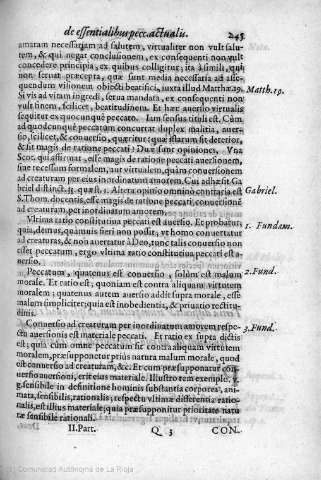 de essentialibus pecc. actualis. 245
amaram necessariam ad salutem, virtualiter non vult salu-
tem, & qui negat conclusionem, ex consequenti non vult
concedere principia, ex quibus colligitur; ita à simili, qui
non seruat præcepta, quæ sunt media necessaria ad asse-
quendum vltionem obiecti beatifici, iuxta illud Matthæ. 19. Matth. 19.
Si vis ad vitam ingredi, serua mandata, ex consequenti non
vult finem, scilicet, beatitudinem. Et hæc auersio virtualis
sequitur ex quocunque peccato. Iam sensus tituli est. Cùm
ad quodcunque peccatum concurrat duplex malitia, auer-
sio, scilicet, & conuersio, quæritur: quæ istarum sit deterior,
& sit magis de ratione peccati? Duæ sunt opiniones. Vna
Scot. qui affirmat, esse magis de ratione peccati auersionem,
siue recessum formalem, aut virtualem, quàm conuersionem
ad creaturam per eius inordinatum amorem. Cui adhæsit Ga
briel distinct. quæst. 1. Altera opinio omninò contraria est Gabriel.
S. Thom. docentis, esse magis de ratione peccati, conuersionē
ad creaturam, per inordinatum amorem.
Vltima ratio constitutiua peccati est auersio. Et probatur: 1. Fundam.
quia, demus, quamuis fieri non possit, vt homo conuertatur
ad creaturas, & non auertatur à Deo, tunc talis conuersio non
esset peccatum, ergo vltima ratio constitutiua peccati est a-
uersio.
Peccatum, quatenus est conuersio, solùm est malum 2. Fund.
morale. Et ratio est, quoniam est contra aliquam virtutem
moralem: quatenus autem auersio addit supra morale, esse
malum simpliciter; quia est inobedientia, & priuatio rectitu-
dinis.
Conuersio ad creaturam per inordinatum amorem respe- 3. Fund.
ctu auersionis est materiale peccati. Et ratio ex supra dictis
est; quia cùm omne peccatum sit contra aliquam virtutem
moralem, præsupponetur prius natura malum morale, quod
est conuersio ad creaturam, &c. Et cum præsupponatur con-
uersio auersioni, erit eius materiale. Illustro rem exemplo. v.
g. sensibile in definitione hominis substantia corporea, ani-
mata, sensibilis, rationalis; respectu vltimæ differentiæ ratio-
nalis, est illius materiale; quia præsupponitur prioritate natu
ræ sensibile rationali.
II. Part. Q 3 CON-
Comunidad Autónoma de La Rioja